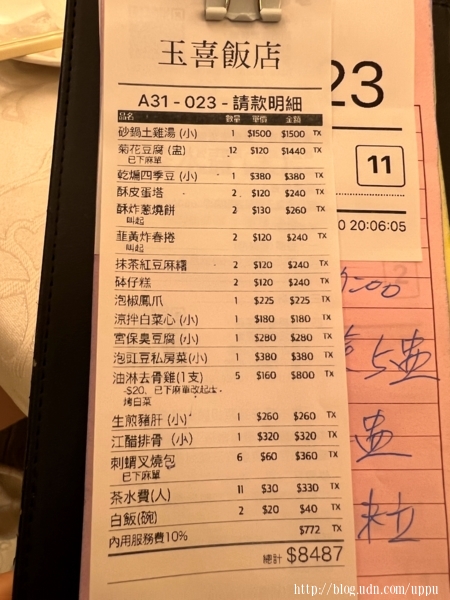 玉喜飯店
A31 - 023 - 請款明細
品名 數量 單價 金額
砂鍋土雞湯 (小) 1 $1500 $1500 TX
菊花豆腐 (盅) 12 $120 $1440 TX
已下麻單
乾煸四季豆 (小) 1 $380 $380 TX
酥皮蛋塔 2 $120 $240 TX
酥炸蔥燒餅 2 $130 $260 TX
叫起
韭黃炸春捲 2 $120 $240 TX
叫起
抹茶紅豆麻糬 2 $120 $240 TX
缽仔糕 2 $120 $240 TX
泡椒鳳爪 1 $225 $225 TX
涼拌白菜心 (小) 1 $180 $180 TX
宮保臭豆腐 (小) 1 $280 $280 TX
泡豇豆私房菜(小) 1 $380 $380 TX
油淋去骨雞(1支) 5 $160 $800 TX
-$20, 已下麻單改起士
烤白菜
生煎豬肝 (小) 1 $260 $260 TX
江醋排骨 (小) 1 $320 $320 TX
刺蝟叉燒包 6 $60 $360 TX
已下麻單
茶水費(人) 11 $30 $330 TX
白飯(碗) 2 $20 $40 TX
內用服務費10% $772 TX
總計 $8487
23
11
0 20:06:05
:00
5壺
壺
粒
http://blog.udn.com/uppu